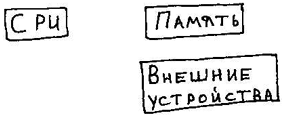 CPU
Память
Внешние
устройства